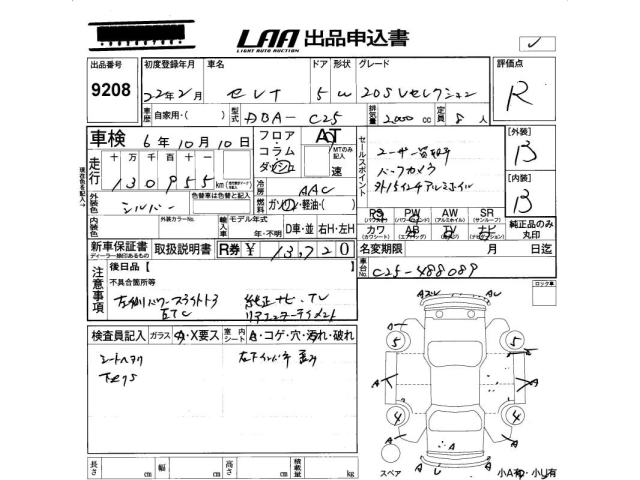 LAA 出品申込書
LIGHT AUTO AUCTION
出品番号 初度登録年月 車名 ドア 形状 グレード 評価点
9208 22年2月 セレナ 5 W 20Sセレクション R
車歴 自家用・( ) 型式 DBA- C25 排気量 2000 cc 定員 8 人
車検 6年10月10日
フロア・コラム・ダッシュ
AT
MTのみ記入
速
セールスポイント
ユーザー買取車
バックカメラ
外15インチアルミホイル
[外装]
B
[内装]
B
走行 十 万 千 百 十 一
130955 km
冷房 AAC
現在色を記入→
外装色 シルバー 色替車は色替と記入
燃料 ガソリン・軽油・( )
PS PW AW SR
カワ AB TV ナビ
純正品のみ丸印
内装色 外装カラーNo. 輸入車 モデル年式 年・不明 D車・並 右H・左H
新車保証書 取扱説明書 R券 ¥ 13,720
名変期限 月 日迄
注意事項
後日品【
不具合箇所等
左側パワースライドドア 純正ナビ、TV
ETC リアエンターテイメント
車台No. C25-488089
ロック車
検査員記入 ガラス A・X要ス 室内シート A・コゲ・穴・汚れ・破れ
シートヘタリ
下セクS
長さ cm 幅 cm 高さ cm 積載量 kg
A U
A A
5 5
A A
4 4
A A
A
A
U A
スペア
小A有 小U有